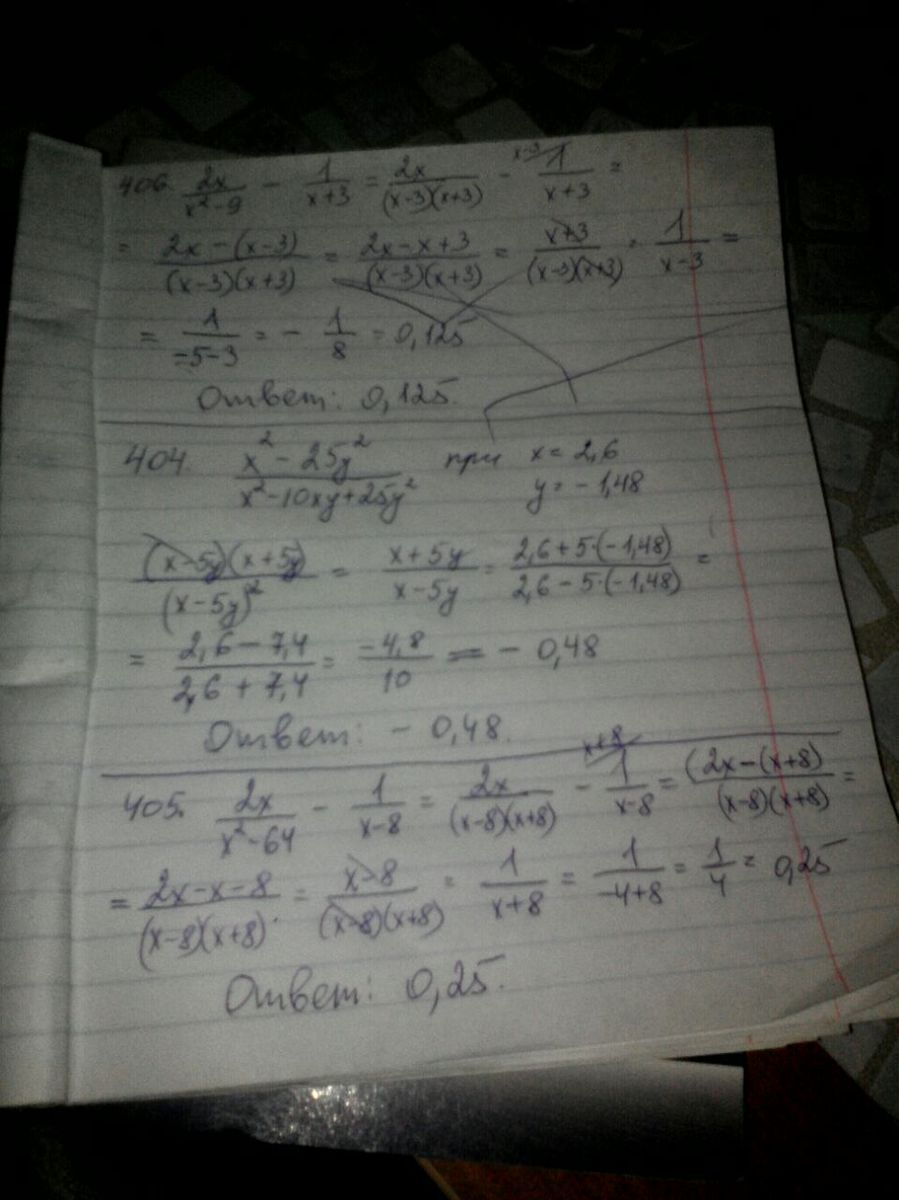 406. 2x/(x²-9) - 1/(x+3) = 2x/((x-3)(x+3)) - x-3 1/(x+3) =
= (2x-(x-3))/((x-3)(x+3)) = (2x-x+3)/((x-3)(x+3)) = (x+3)/((x-3)(x+3)) = 1/(x-3) =
= 1/(-5-3) = - 1/8 = 0,125
Ответ: 0,125.
404. (x²-25y²)/(x²-10xy+25y²) при x = 2,6
y = -1,48
((x-5y)(x+5y))/(x-5y)² = (x+5y)/(x-5y) = (2,6+5·(-1,48))/(2,6-5·(-1,48)) =
= (2,6-7,4)/(2,6+7,4) = -4,8/10 = - 0,48
Ответ: - 0,48.
405. 2x/(x²-64) - 1/(x-8) = 2x/((x-8)(x+8)) - x+8 1/(x-8) = (2x-(x+8)/((x-8)(x+8)) =
= (2x-x-8)/((x-8)(x+8)) = (x-8)/((x-8)(x+8)) = 1/(x+8) = 1/(-4+8) = 1/4 = 0,25
Ответ: 0,25.